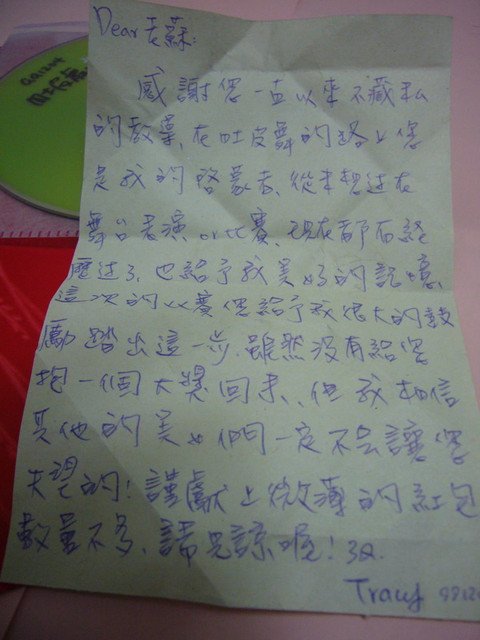 Dear 老蘇:
感謝您一直以來不藏私
的教導,在肚皮舞的路上您
是我的啓蒙者,從未想過在
舞台表演or比賽,現在都已經
歷過了,也給予我美好的記憶,
這次的比賽您給予我很大的鼓
勵踏出這一步.雖然沒有給您
抱一個大獎回來,但我相信
其他的美女們一定不會讓您
失望的!謹獻上微薄的紅包
數量不多,請見諒喔!
Tracy